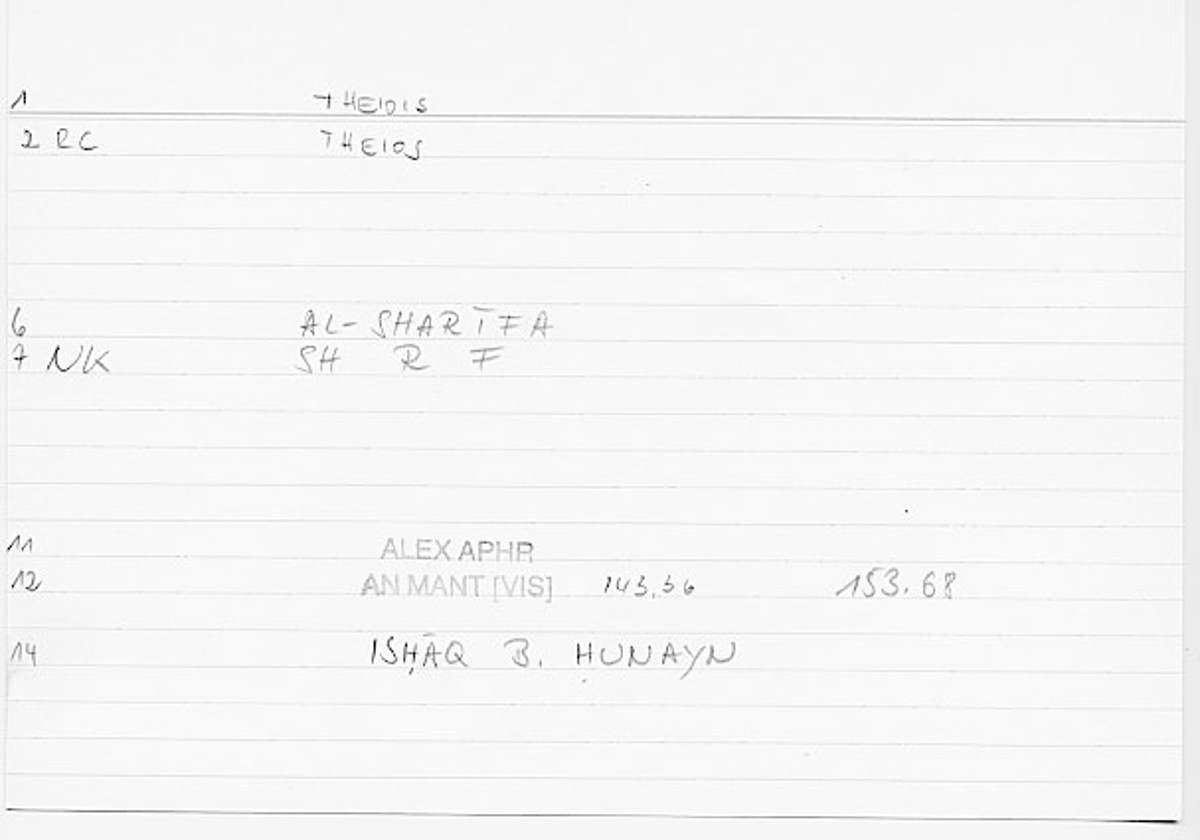 1 THEIOIS
2 RC THEIOS
6 AL-SHARĪFA
7 NK SH R F
11 ALEX APHR
12 AN MANT [VIS] 143,36 153.68
14 ISḤĀQ B. ḤUNAYN